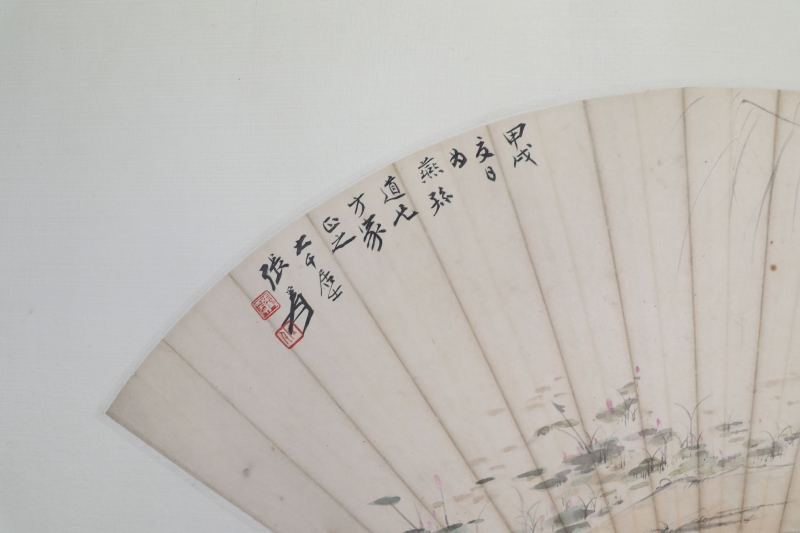 甲戌
夏日
为
燕孫
道士
方家
正之
大千居士
張爰